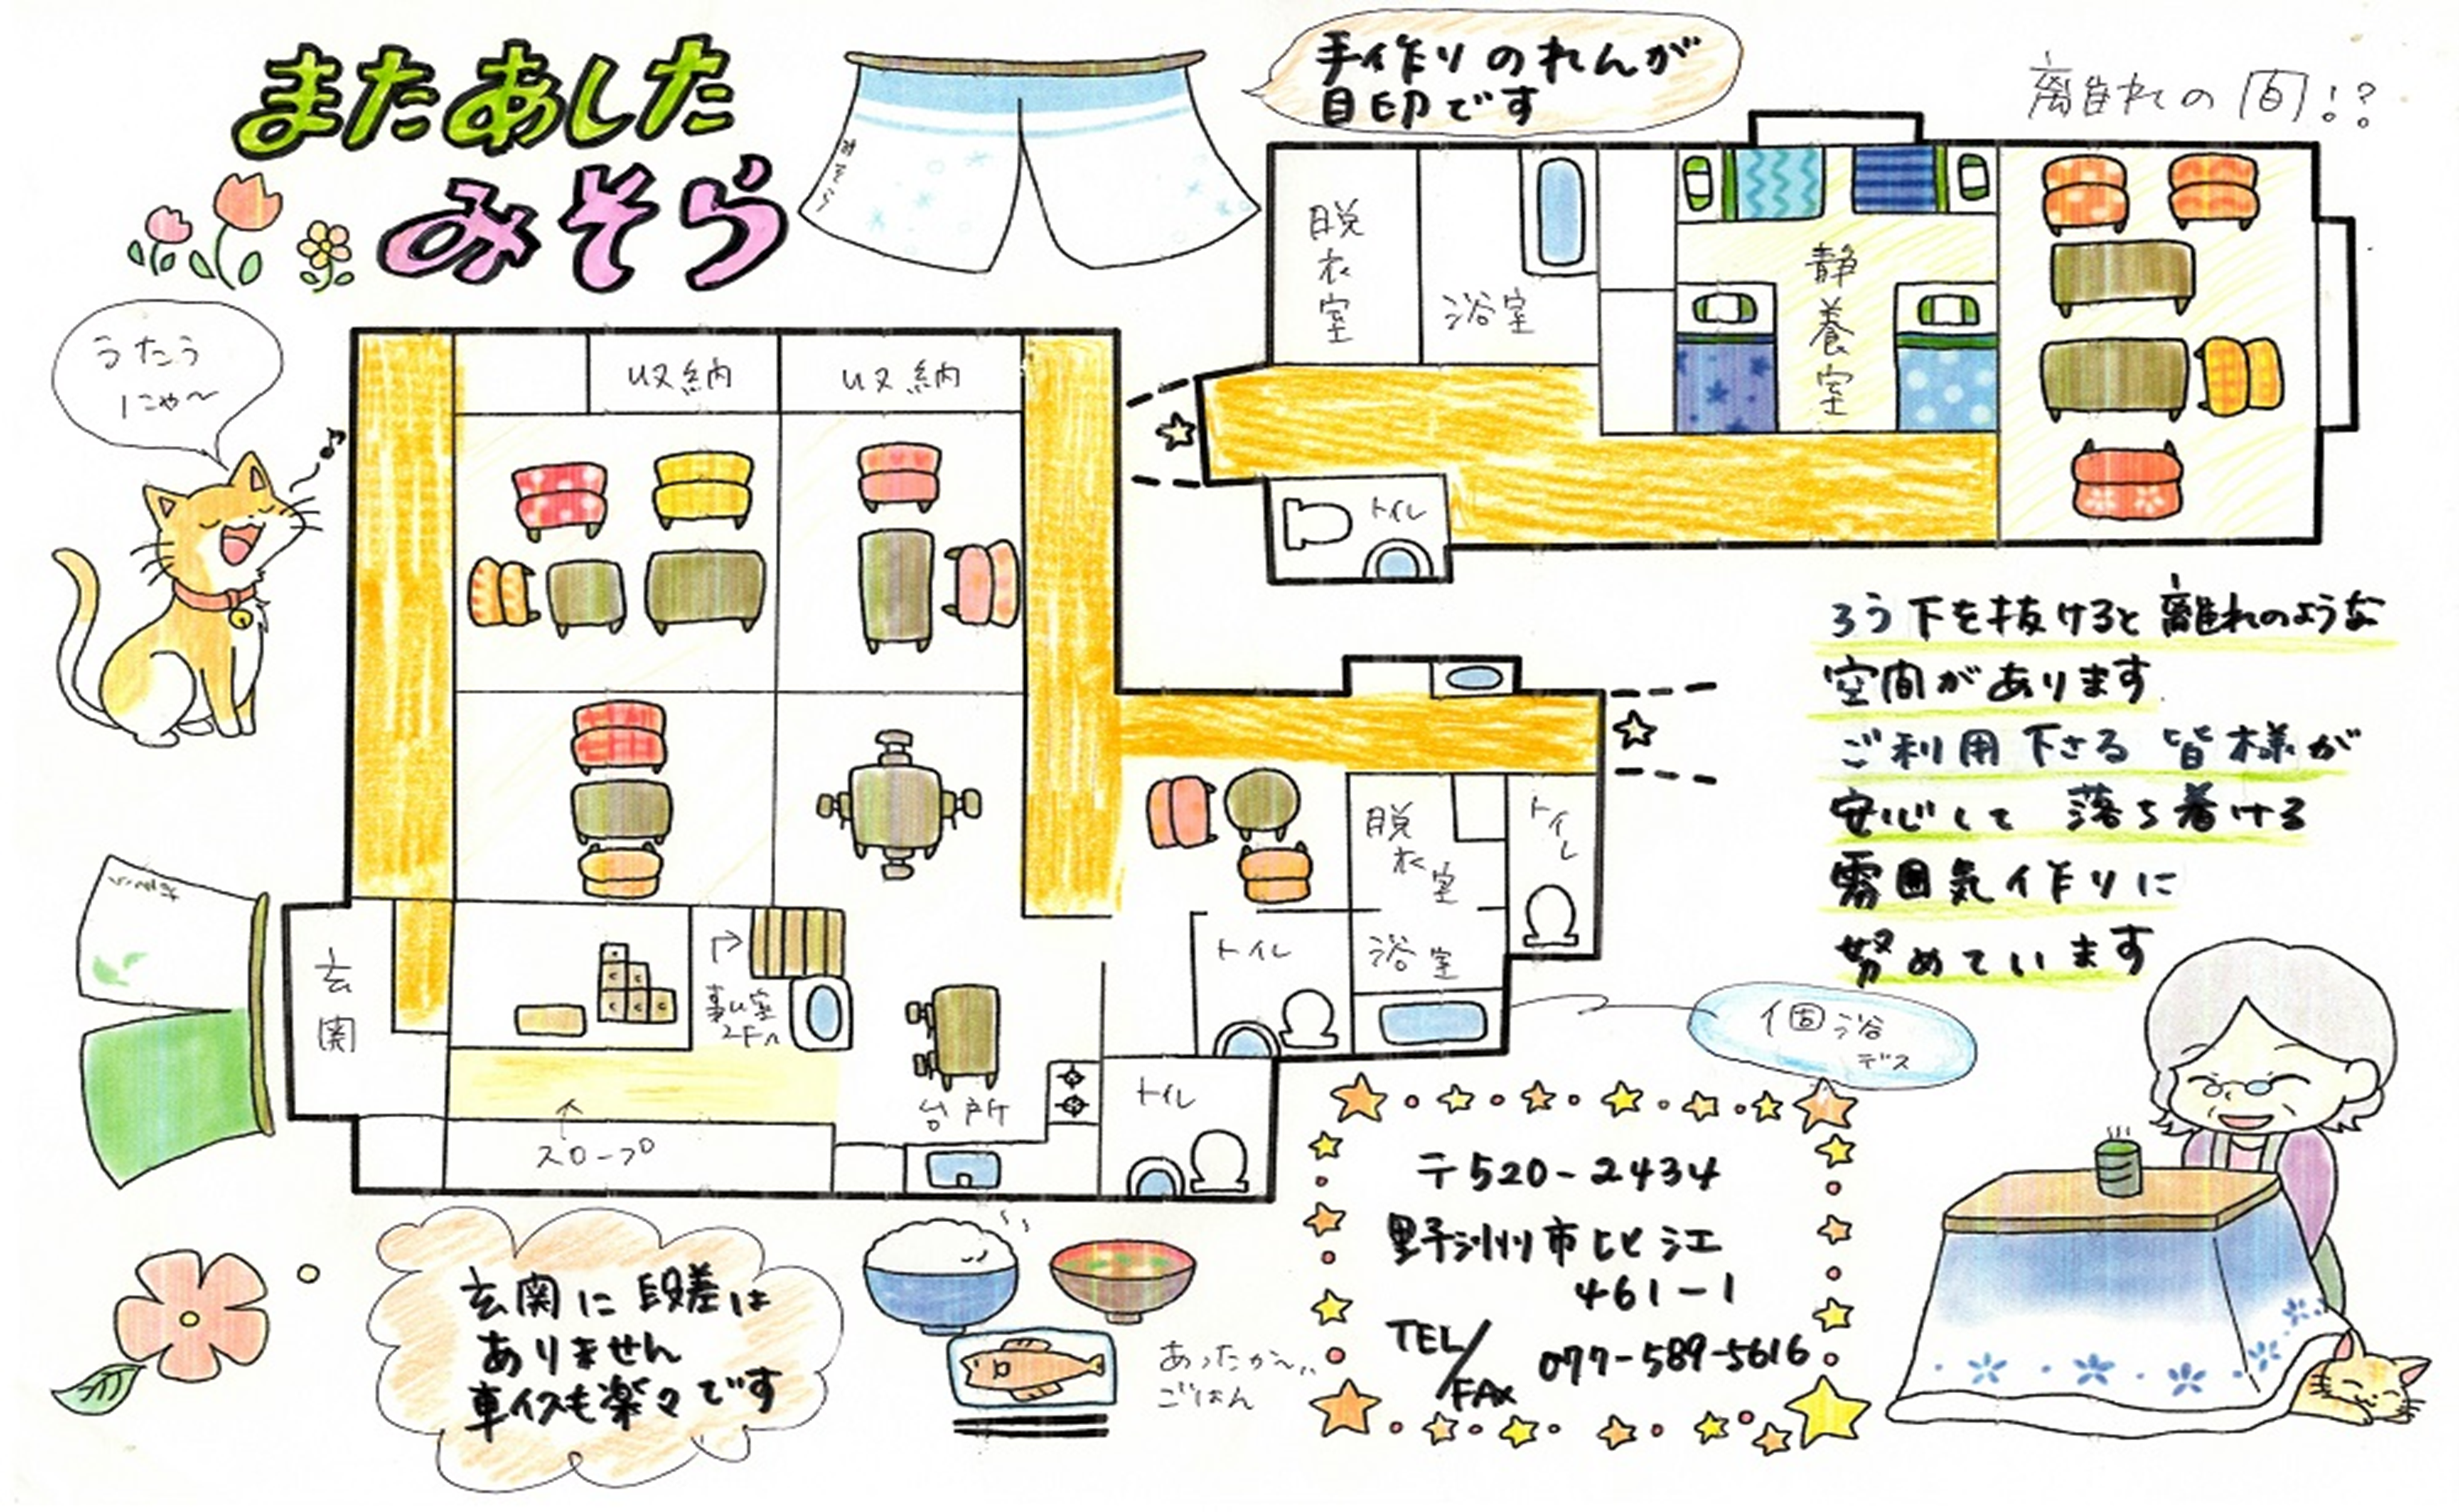 またあした
みそら
手作りのれんが
目印です
みそら
離れの間!?
うたう
にゃ〜
♪
脱衣室
浴室
静養室
トイレ
収納
収納
ろう下を抜けると離れのような
空間があります
ご利用下さる皆様が
安心して落ち着ける
雰囲気作りに
努めています
脱衣室
トイレ
トイレ
浴室
個浴
デス
玄関
事ム室
2Fへ
台所
トイレ
↑
スロープ
玄関に段差は
ありません
車イスも楽々です
あったか〜い
ごはん
〒520-2434
野洲市比江
461-1
TEL/FAX 077-589-5616